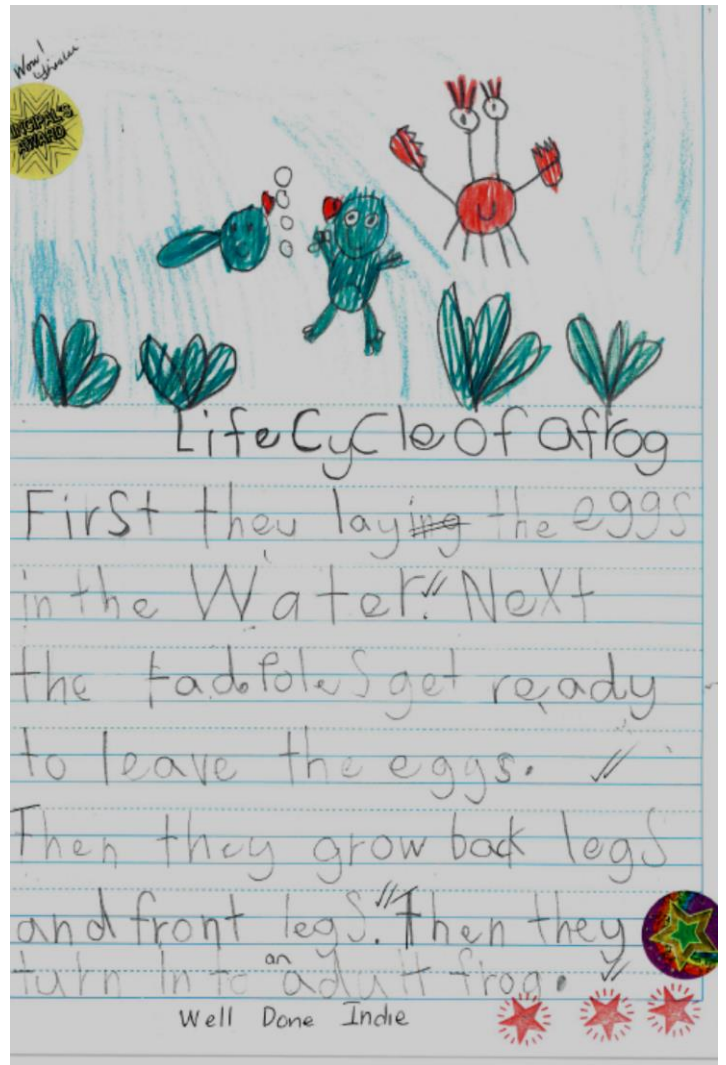 Wow!
PRINCIPAL'S
AWARD
Life Cycle of a frog
First they lay the eggs
in the Water. Next
the tadpoles get ready
to leave the eggs.
Then they grow back legs
and front legs. Then they
turn into an adult frog.
Well Done Indie